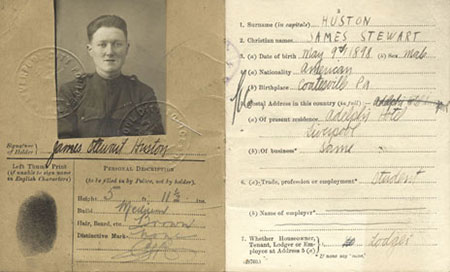 Signature of Holder
James Stewart Huston
Left Thumb Print
(if unable to sign name in English Characters)
PERSONAL DESCRIPTION
(to be filled in by Police, not by holder)
Height 5 11½
Build Medium
Hair, Beard, etc. Brown
Distinctive Mark
3
1. Surname (in capitals) HUSTON
2. Christian names JAMES STEWART
3. (a) Date of birth May 9th 1898 (b) Sex Male
4. (a) Nationality American
(b) Birthplace Coatesville Pa
5. Postal Address in this country (in full):
(a) Of present residence Adelphi Hotel
Liverpool
(b) Of business Same
6. (a) Trade, profession or employment Student
(b) Name of employer
7. Whether Householder, Tenant, Lodger or Employee at Address 5 (a) Lodger
"If home say 'none.'"